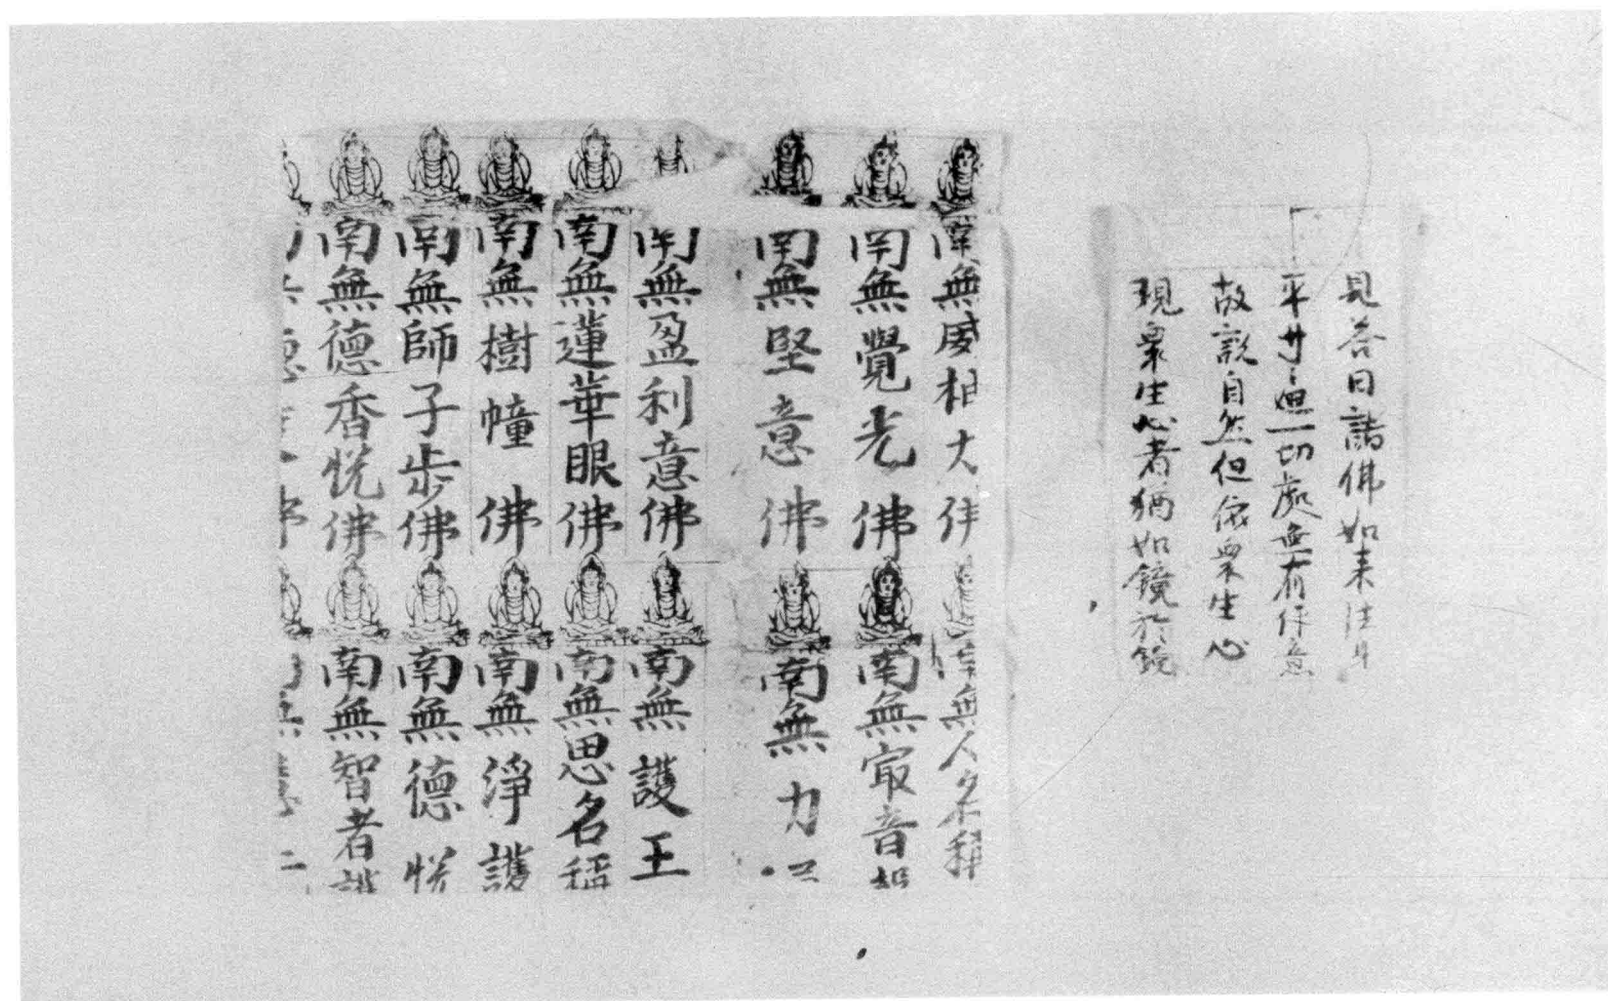 見答曰諸佛如来法身
平䓁遍一切處無有作意
故説自然但依衆生心
現衆生心者猶如鏡於鏡
南無威相大佛
南無覺光佛
南無堅意佛
南無盈利意佛
南無蓮華眼佛
南無樹幢佛
南無師子步佛
南無德香悅佛
無
佛
南無人名稱
南無寂音
南無力
南無護王
南無思名稱
南無淨護
南無德悅
南無智者讃
無